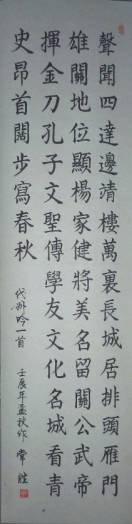 聲聞四達邊靖樓萬裏長城居排頭雁門
雄關地位顯楊家健將美名留關公武帝
揮金刀孔子文聖傳學友文化名城看青
史昂首闊步寫春秋
代州吟一首
壬辰年孟秋作